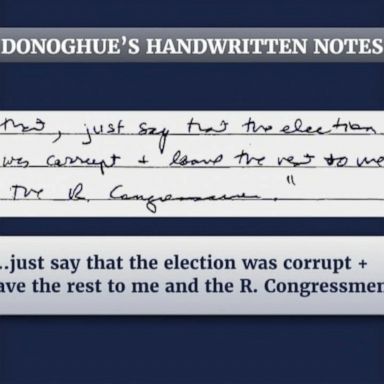 DONOGHUE'S HANDWRITTEN NOTES
that, just say that the election
was corrupt + leave the rest to me
The R. Congressmen."
...just say that the election was corrupt +
ave the rest to me and the R. Congressmen